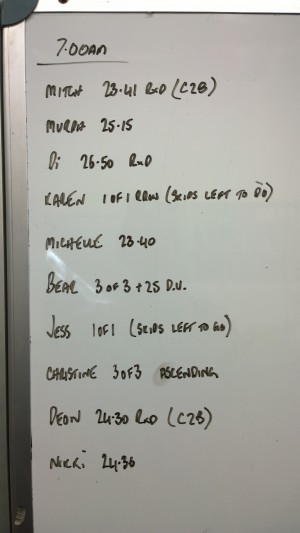 7.00AM
MITCH 23.41 RXD (C2B)
MURPH 25.15
Di 26.50 RXD
KAREN 1 OF 1 ROW (SKIPS LEFT TO DO)
MICHELLE 23.40
BEAR 3 OF 3 + 25 D.U.
JESS 1 OF 1 (SKIPS LEFT TO GO)
CHRISTINE 3 OF 3 ASCENDING
DEON 24.30 RXD (C2B)
NIKKi 24.36